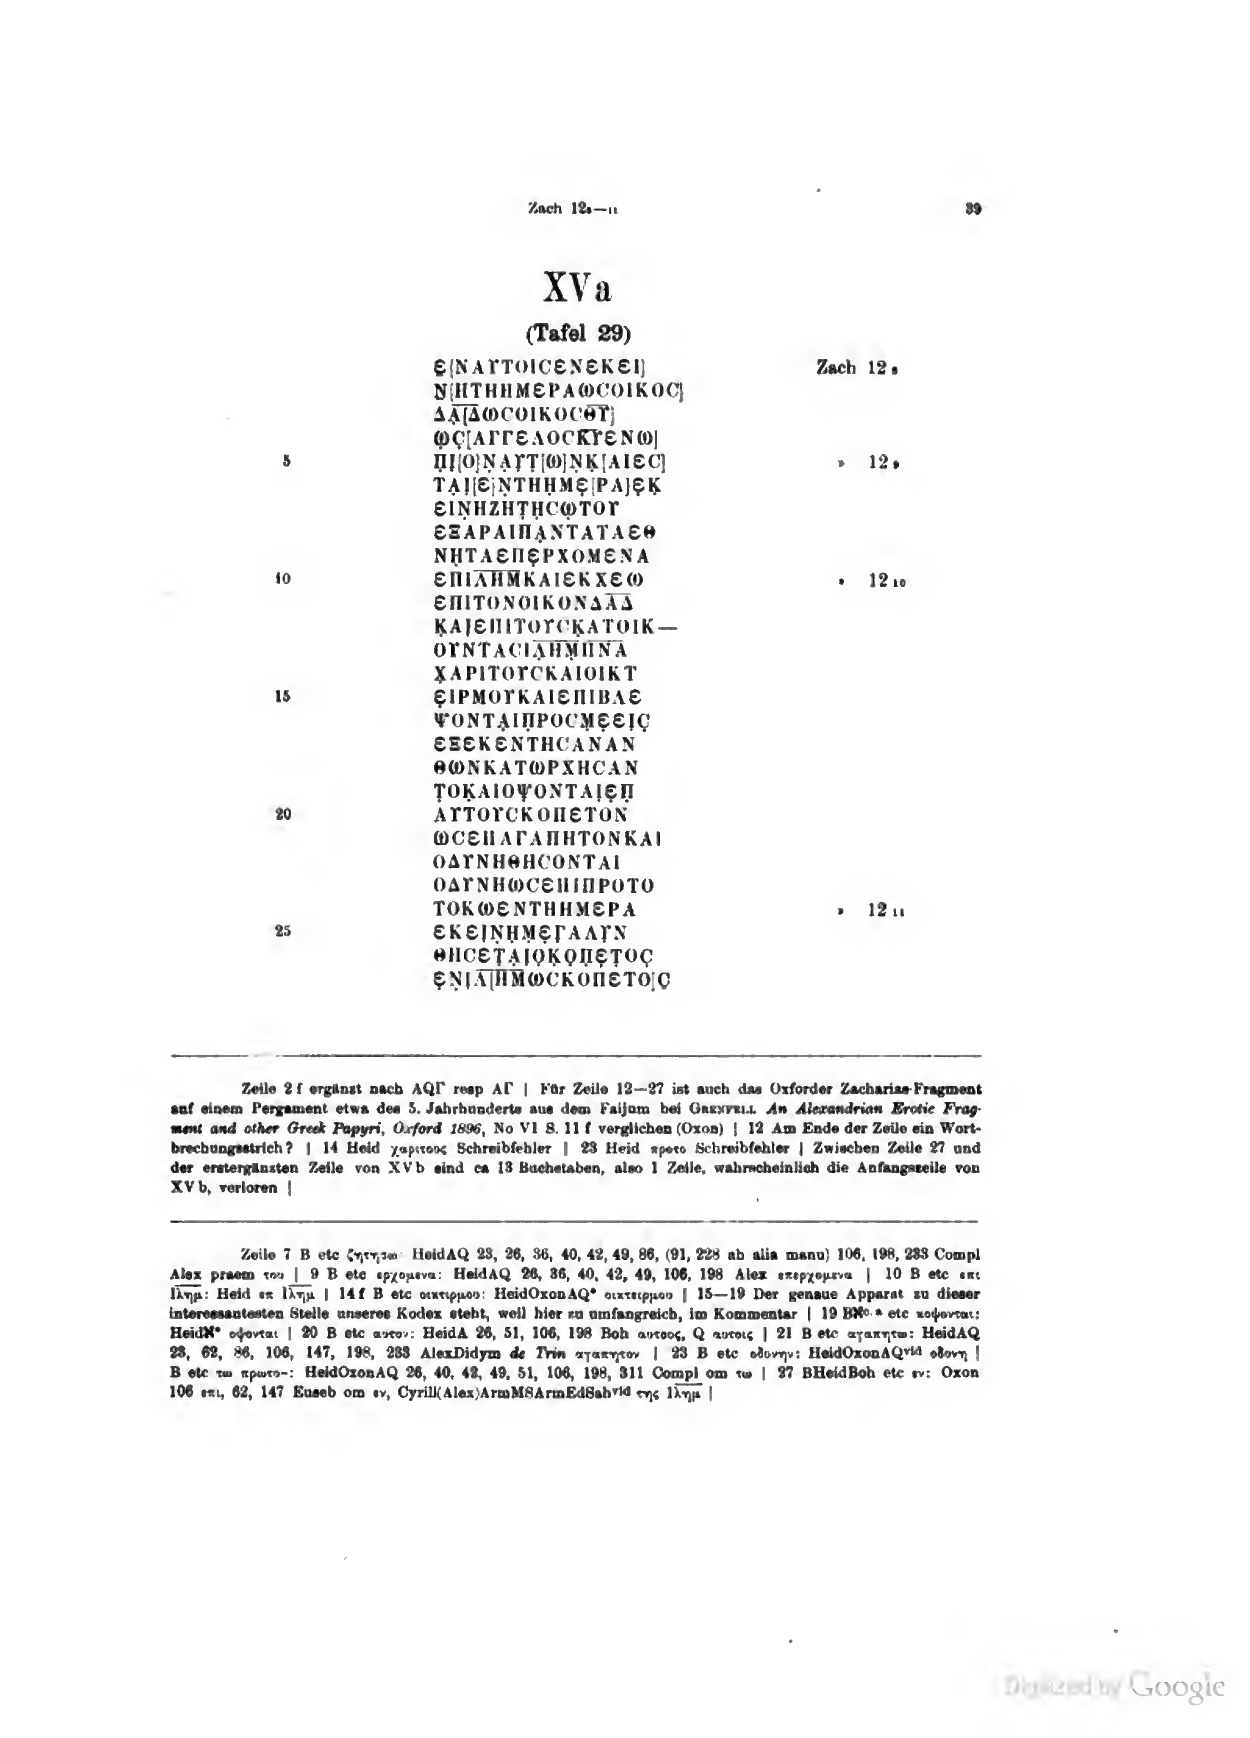 Zach 12₈—₁₁ 39
XVa
(Tafel 29)
Ε̣[ΝΑΥΤΟΙϹΕΝΕΚΕΙ] Zach 12 ₈
Ν̣[ΗΤΗΗΜΕΡΑΩϹΟΙΚΟϹ]
ΔΑ̣̅[Δ̅ΩϹΟΙΚΟϹΘ̅Υ̅]
Ω̣Ϲ̣[ΑΓΓΕΛΟϹΚ̅Υ̅ΕΝΩ]
5 Π̣Ι[Ο]Ν̣Α̣Υ̣Τ̣[Ω]Ν̣Κ̣[ΑΙΕϹ] » 12 ₉
ΤΑ̣Ι̣[Ε]Ν̣ΤΗΗ̣ΜΕ̣[ΡΑ]Ε̣Κ̣
ΕΙΝ̣ΗΖΗΤ̣Η̣ϹΩ̣ΤΟΥ
ΕΞΑΡΑΙΠΑ̣ΝΤΑΤΑΕΘ
ΝΗ̣ΤΑΕΠΕ̣ΡΧΟΜΕΝΑ
10 ΕΠΙΛ̅Η̅Μ̅ΚΑΙΕΚΧΕΩ » 12 ₁₀
ΕΠΙΤΟΝΟΙΚΟΝΔΑ̅Δ̅
Κ̣ΑΙΕΠΙΤΟΥϹΚ̣ΑΤΟΙΚ—
ΟΥΝΤΑϹΙΛ̣̅Η̅Μ̣̅Π̅Ν̅Α̅
Χ̣ΑΡΙΤΟΥϹΚΑΙΟΙΚΤ
15 Ε̣ΙΡΜΟΥΚΑΙΕΠΙΒΛΕ
ΨΟΝΤΑ̣ΙΠ̣ΡΟϹΜ̣Ε̣ΕΙ̣Ϲ̣
ΕΞΕΚΕΝΤΗϹΑΝΑΝ
ΘΩΝΚΑΤΩΡΧΗϹΑΝ
Τ̣ΟΚ̣ΑΙΟΨΟΝΤΑΙ̣Ε̣Π̣
20 ΑΥΤΟΥϹΚΟΠΕΤΟΝ
ΩϹΕΠΑΓΑΠΗΤΟΝΚΑΙ
ΟΔΥΝΗΘΗϹΟΝΤΑΙ
ΟΔΥΝΗΩϹΕΠΙΠΡΟΤΟ
ΤΟΚΩΕΝΤΗΗΜΕΡΑ » 12 ₁₁
25 ΕΚΕΙ̣Ν̣Η̣Μ̣Ε̣Γ̣ΑΛΥ̣Ν
ΘΗϹΕΤ̣Α̣Ι̣Ο̣Κ̣Ο̣Π̣Ε̣Τ̣ΟϹ̣
Ε̣Ν̣Ι̣Λ̅[Η̅Μ̅ΩϹΚΟΠΕΤΟ]Ϲ̣
Zeile 2 f ergänzt nach AQΓ resp AΓ | Für Zeile 12—27 ist auch das Oxforder Zacharias-Fragment
auf einem Pergament etwa des 5. Jahrhunderts aus dem Faijum bei GRENFELL An Alexandrian Erotic Frag-
ment and other Greek Papyri, Oxford 1896, No VI S. 11 f verglichen (Oxon) | 12 Am Ende der Zeile ein Wort-
brechungsstrich? | 14 Heid χαριτους Schreibfehler | 23 Heid προτο Schreibfehler | Zwischen Zeile 27 und
der erstergänzten Zeile von XVb sind ca 13 Buchstaben, also 1 Zeile, wahrscheinlich die Anfangszeile von
XVb, verloren |
Zeile 7 B etc ζητησω: HeidAQ 23, 26, 36, 40, 42, 49, 86, (91, 228 ab alia manu) 106, 198, 233 Compl
Alex praem του | 9 B etc ερχομενα: HeidAQ 26, 36, 40, 42, 49, 106, 198 Alex επερχομενα | 10 B etc επι
Ιλημ: Heid επ Ιλημ | 14 f B etc οικτιρμου: HeidOxonAQ* οικτειρμου | 15—19 Der genaue Apparat zu dieser
interessantesten Stelle unseres Kodex steht, weil hier zu umfangreich, im Kommentar | 19 Bאc.a etc κοψονται:
Heidא* οψονται | 20 B etc αυτον: HeidA 26, 51, 106, 198 Boh αυτους, Q αυτοις | 21 B etc αγαπητω: HeidAQ
23, 62, 86, 106, 147, 198, 233 AlexDidym de Trin αγαπητον | 23 B etc οδυνην: HeidOxonAQvid οδυνη |
B etc τω πρωτο-: HeidOxonAQ 26, 40, 42, 49, 51, 106, 198, 311 Compl om τω | 27 BHeidBoh etc εν: Oxon
106 επι, 62, 147 Euseb om εν, Cyrill(Alex)ArmMSArmEdSahvid της Ιλημ |
Digitized by Google